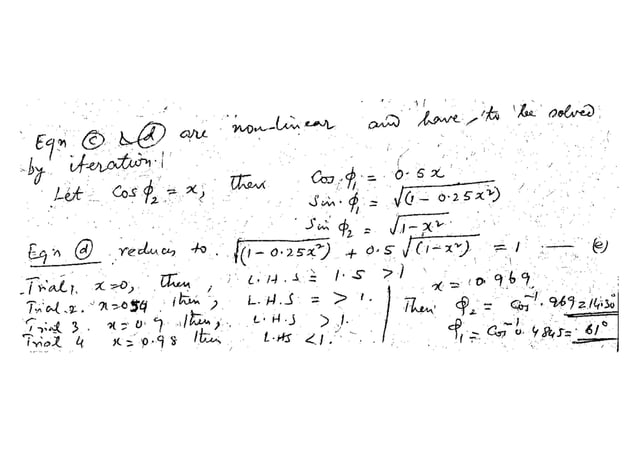 Eqn ⓒ & ⓓ are non-linear and have to be solved
by iteration.
Let Cos ϕ₂ = x, then Cos ϕ₁ = 0.5x
Sin ϕ₁ = √(1 - 0.25x²)
Sin ϕ₂ = √1-x²
Eqn ⓓ reduces to √(1-0.25x²) + 0.5 √(1-x²) = 1 — (e)
Trial 1. x=0, then, L.H.S = 1.5 >1
Trial 2. x=054 then, L.H.S = > 1.
Trial 3. x=0.9 then, L.H.S > 1.
Trial 4 x=0.98 then L.HS <1.
x = 0.969
Then ϕ₂ = Cos⁻¹ .969=14.30°
ϕ₁ = Cos⁻¹ 0.4845= 61°